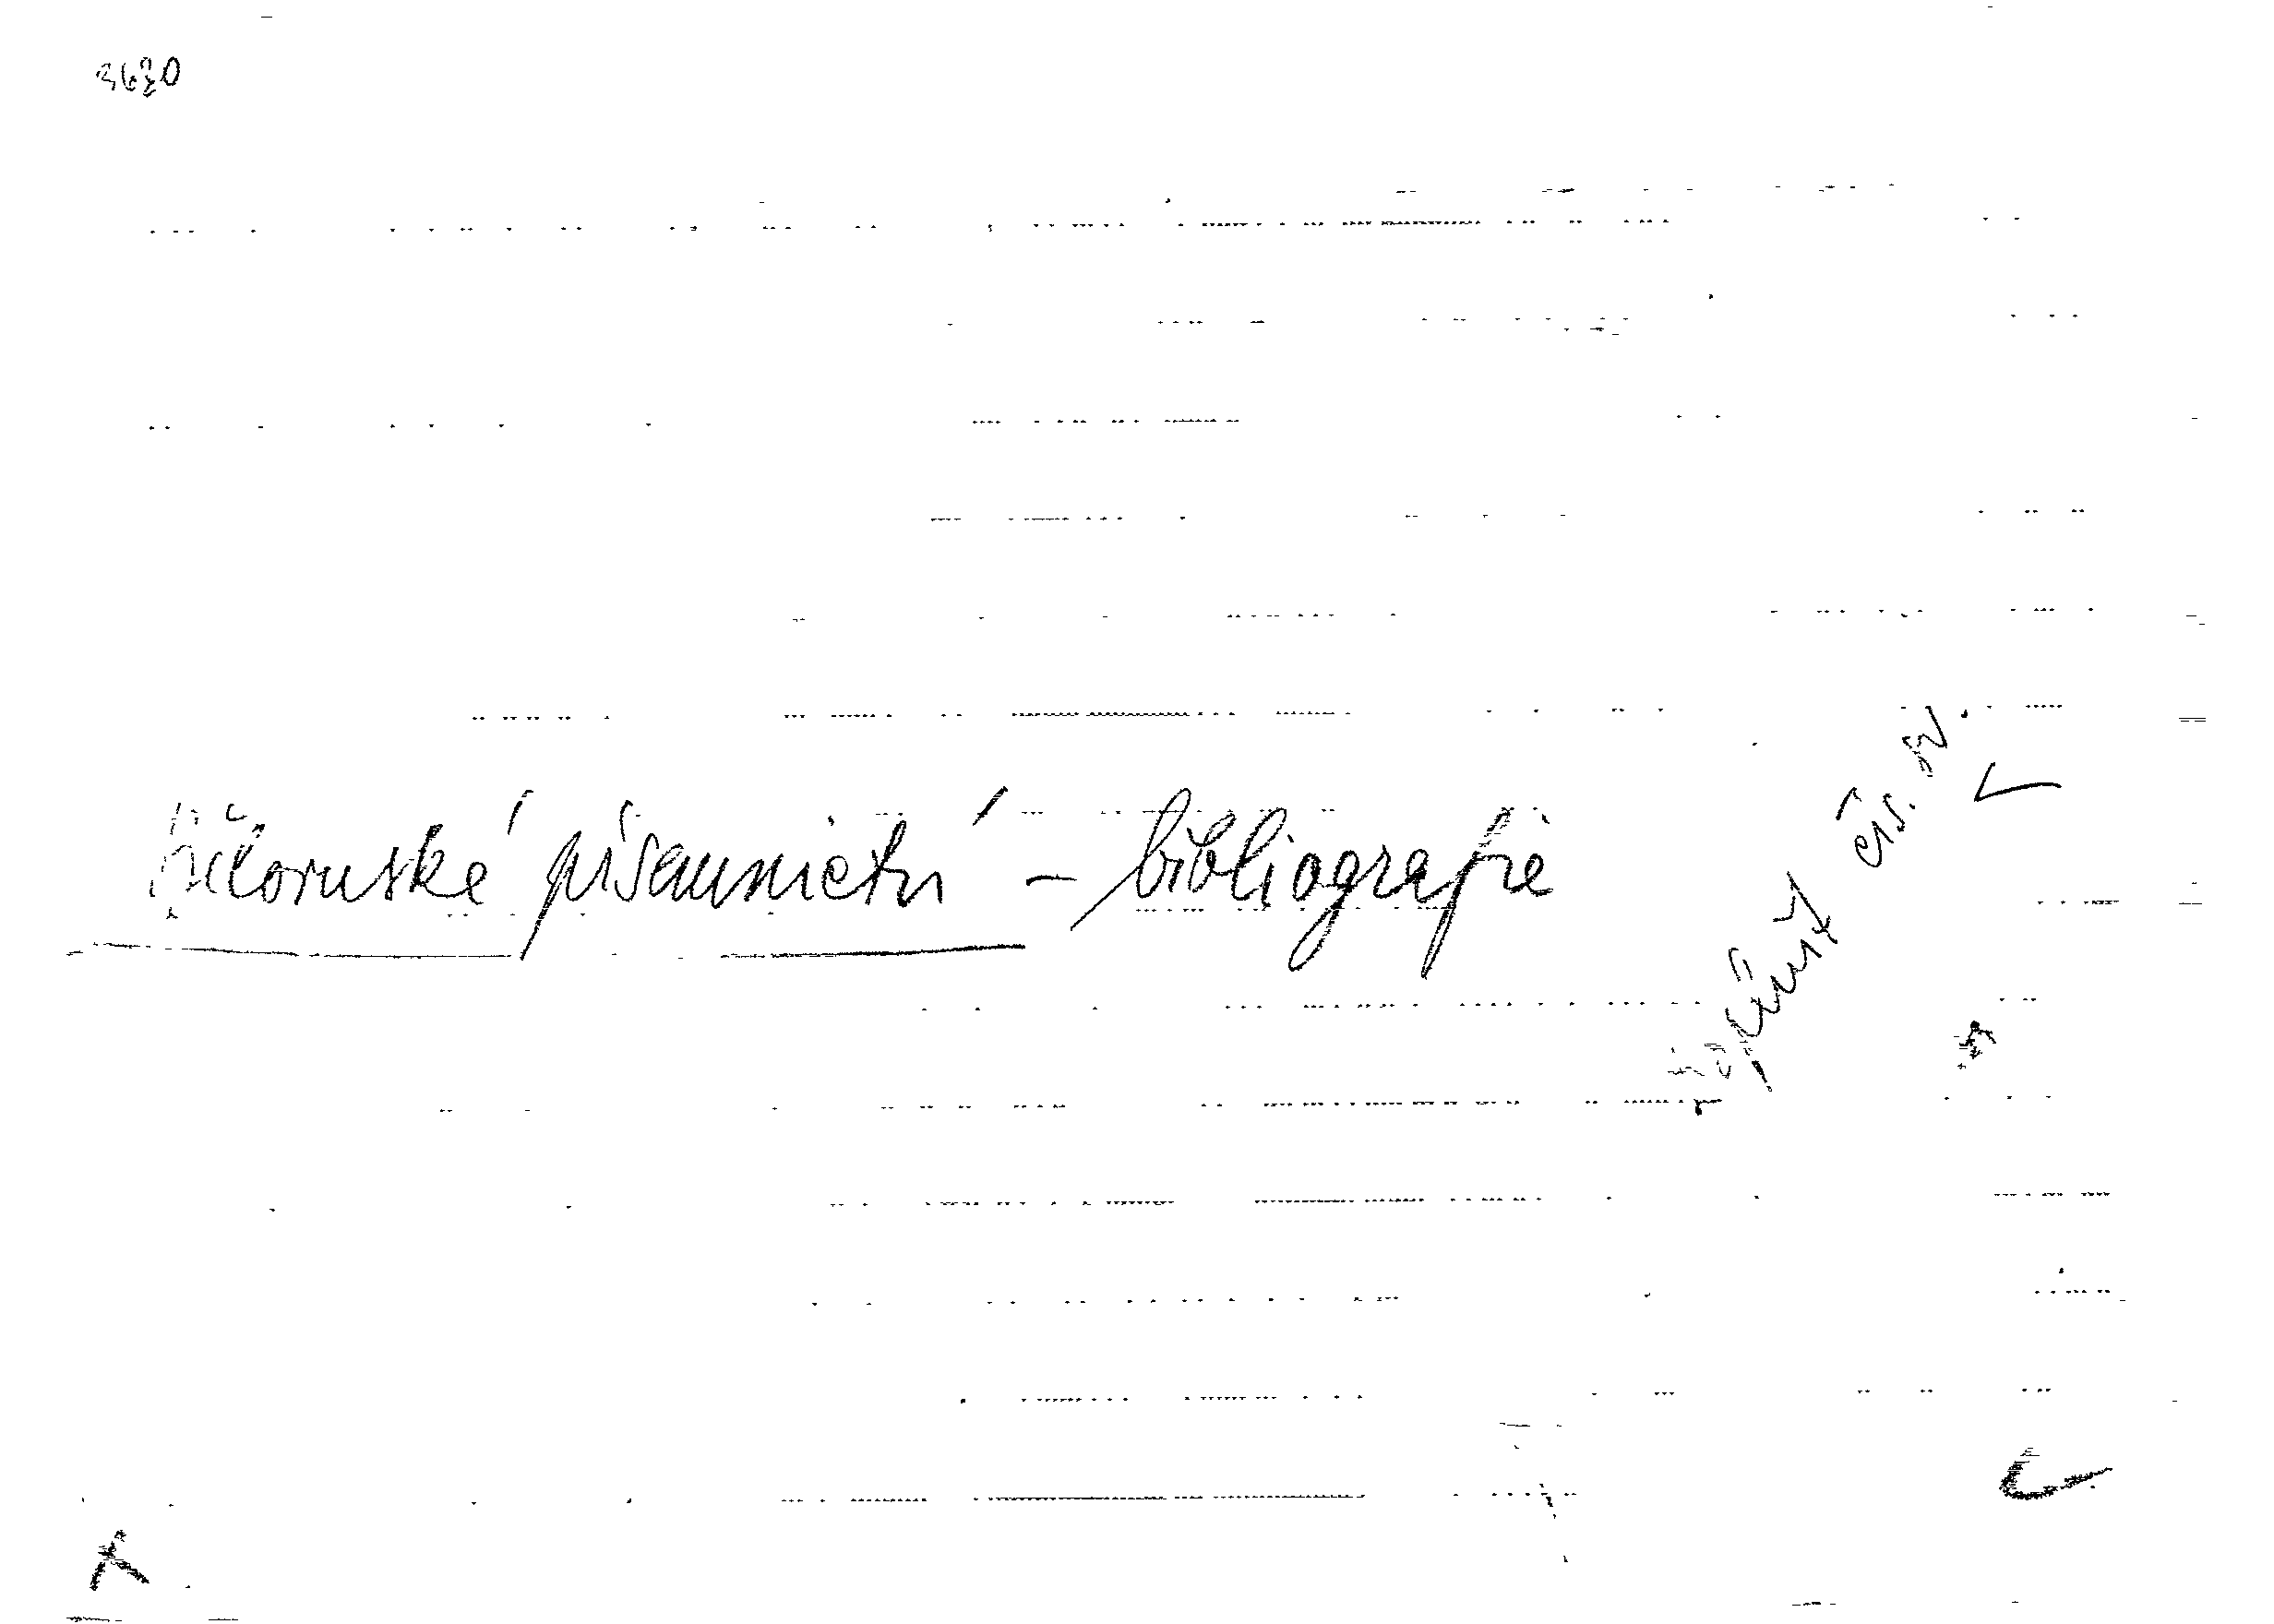 3630
běloruské písemnictví – bibliografie
čís. sv.